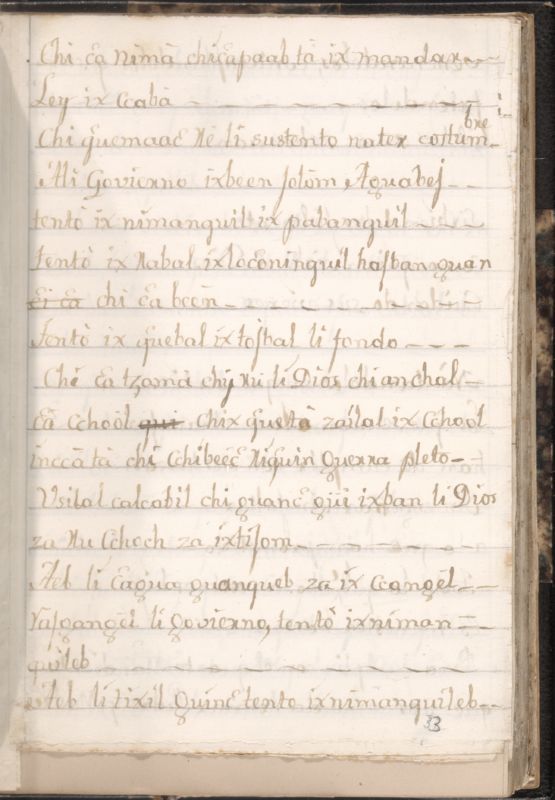 Chi ca nima chicapaab ta ix mandar
Ley ix Ccaba
Chi quemaac Re li sustento nater costumbre
Ati Govierno ixbeen jolom Aguabej
tento ix nimanquil ix pabanquil
tento ix Nabal ixloconinquil hasban quan
Ei ca chi ca been
tento ix quebal ix tosbal li fondo
Chi ca tzama chij Ru li Dios chi anchal
ca Cchool qui Chix queta zailal ix Cchool
incca ta chi Cchibeec Riquin Guerra pleto
Usilal calcabil chi quanc qui ixban li Dios
za Ru Cchoch za ixtijom
Aeb li cagua quanqueb za ix Ccangel
Vasqangel li Govierno, tento ix niman
quileb
Aeb li tixil quinc tento ix nimanquileb
33